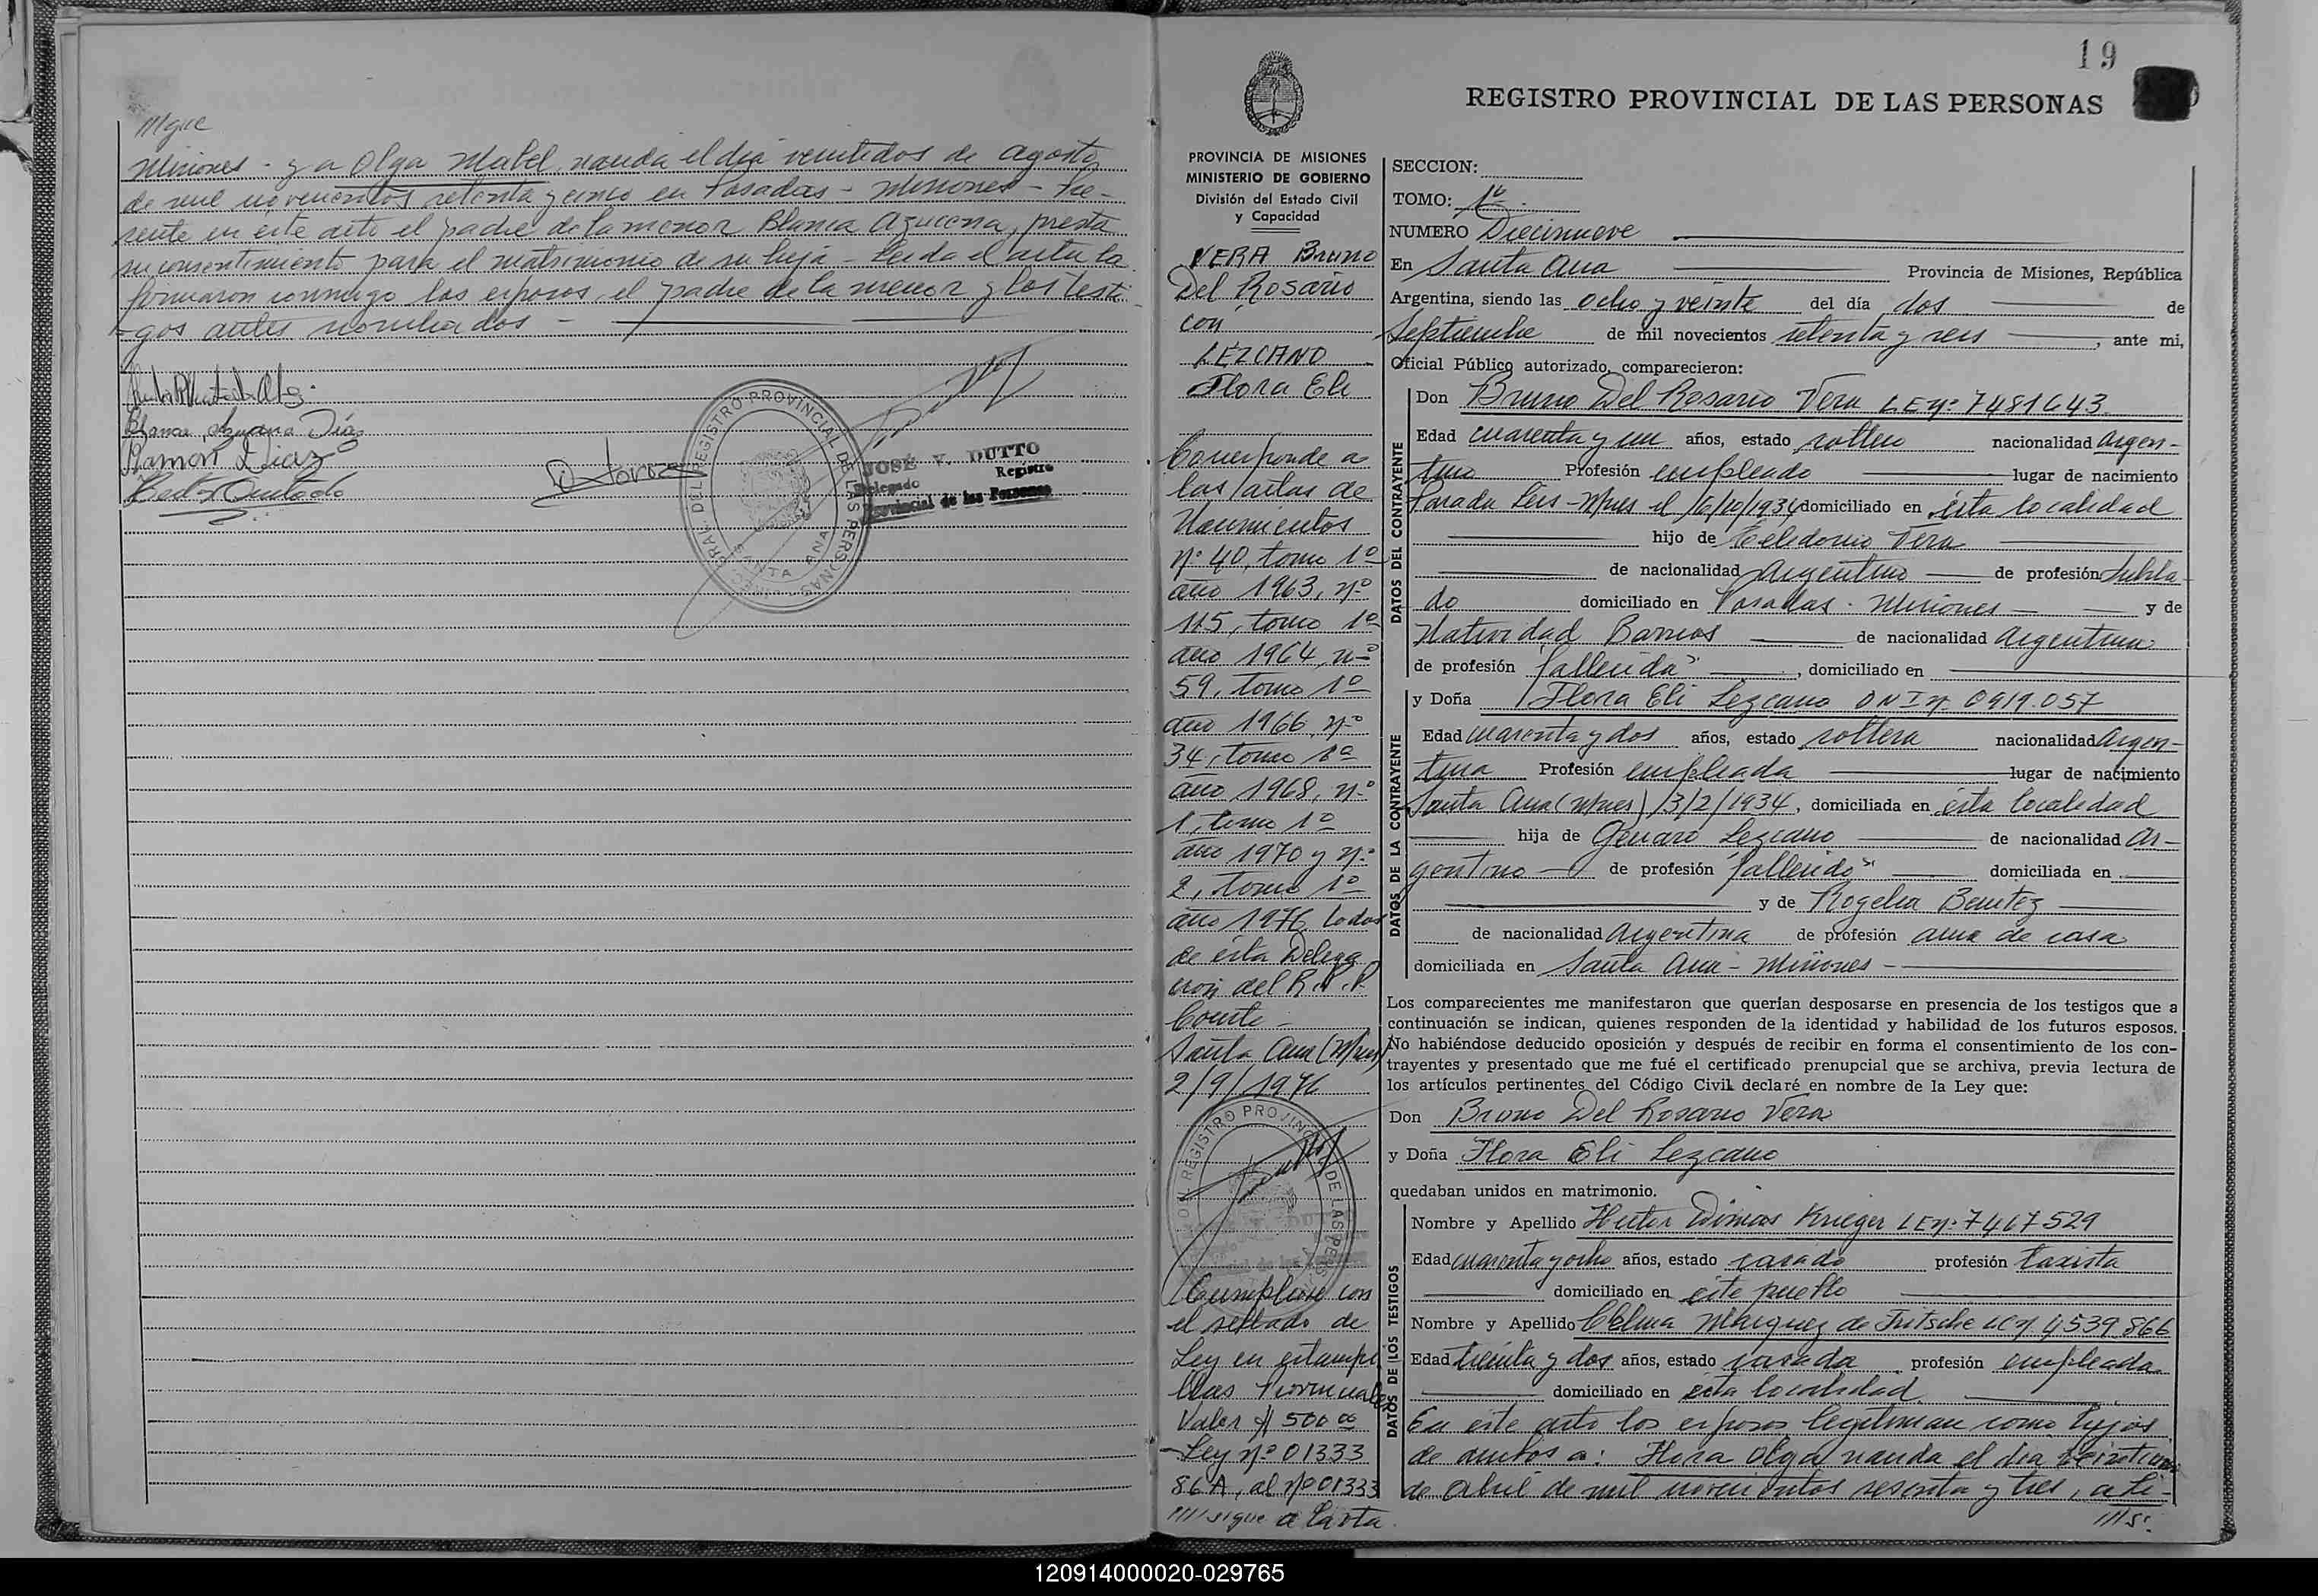 ///que
Misiones - y a Olga Mabel, nacida el día veintidos de agosto
de mil novecientos setenta y cinco en Posadas - Misiones - Pre-
sente en este acto el padre de la menor Blanca Azucena, presta
su consentimiento para el matrimonio de su hija - Leida el acta la
firmaron conmigo los esposos, el padre de la menor y los testi-
gos antes nombrados -
Blanca Azucena Díaz
Ramon Diaz
REGISTRO PROVINCIAL DE LAS PERSONAS
SANTA ANA
JOSÉ V. DUTTO
Delegado Registro
Provincial de las Personas
19
REGISTRO PROVINCIAL DE LAS PERSONAS
PROVINCIA DE MISIONES
MINISTERIO DE GOBIERNO
División del Estado Civil
y Capacidad
VERA Bruno
Del Rosario
con
LEZCANO
Flora Eli
Corresponde a
las actas de
Nacimientos
nº 40, tomo 1º
año 1963, nº
115, tomo 1º
año 1964, nº
59, tomo 1º
año 1966, nº
34, tomo 1º
año 1968, nº
1, tomo 1º
año 1970 y nº
2, tomo 1º
año 1976 todos
de ésta Delega
ción del R.P.P.
Conste -
Santa Ana (Mnes)
2/9/1976
Cumplióse con
el sellado de
Ley en estampi
llas Provinciales
Valor $ 500 00
Ley nº 01333
86 A, al nº 01333
//// sigue a la vta
SECCION:
TOMO: 1º
NUMERO Diecinueve
En Santa Ana Provincia de Misiones, República
Argentina, siendo las ocho y veinte del día dos de
Septiembre de mil novecientos setenta y seis, ante mi,
Oficial Público autorizado, comparecieron:
DATOS DEL CONTRAYENTE
Don Bruno Del Rosario Vera LE nº 7481643
Edad cuarenta y un años, estado soltero nacionalidad Argen-
tino Profesión empleado lugar de nacimiento
Posada Leis - Mnes el 6/10/1934 domiciliado en ésta localidad
hijo de Celedonio Vera
de nacionalidad Argentino de profesión Jubila-
do domiciliado en Posadas - Misiones y de
Natividad Barrios de nacionalidad argentina
de profesión "fallecida", domiciliado en
DATOS DE LA CONTRAYENTE
y Doña Flora Eli Lezcano DNI nº 0919.057
Edad cuarenta y dos años, estado soltera nacionalidad Argen-
tina Profesión empleada lugar de nacimiento
Santa Ana (Mnes) 13/2/1934, domiciliada en ésta localidad
hija de Genaro Lezcano de nacionalidad Ar-
gentino de profesión "fallecido" domiciliada en
y de Rogelia Benitez
de nacionalidad Argentina de profesión ama de casa
domiciliada en Santa Ana - Misiones -
Los comparecientes me manifestaron que querían desposarse en presencia de los testigos que a
continuación se indican, quienes responden de la identidad y habilidad de los futuros esposos.
No habiéndose deducido oposición y después de recibir en forma el consentimiento de los con-
trayentes y presentado que me fué el certificado prenupcial que se archiva, previa lectura de
los artículos pertinentes del Código Civil declaré en nombre de la Ley que:
Don Bruno Del Rosario Vera
y Doña Flora Eli Lezcano
quedaban unidos en matrimonio.
DATOS DE LOS TESTIGOS
Nombre y Apellido Hector Dimas Krieger LE nº 7467529
Edad cuarenta y ocho años, estado casado profesión taxista
domiciliado en este pueblo
Nombre y Apellido Celma Marquez de Fritsche LC nº 4539866
Edad treinta y dos años, estado casada profesión empleada
domiciliado en esta localidad
En este acto los esposos legitiman como hijos
de ambos a: Flora Olga nacida el día veintiuno
de Abril de mil novecientos sesenta y tres, a Li-
///s.
120914000020-029765